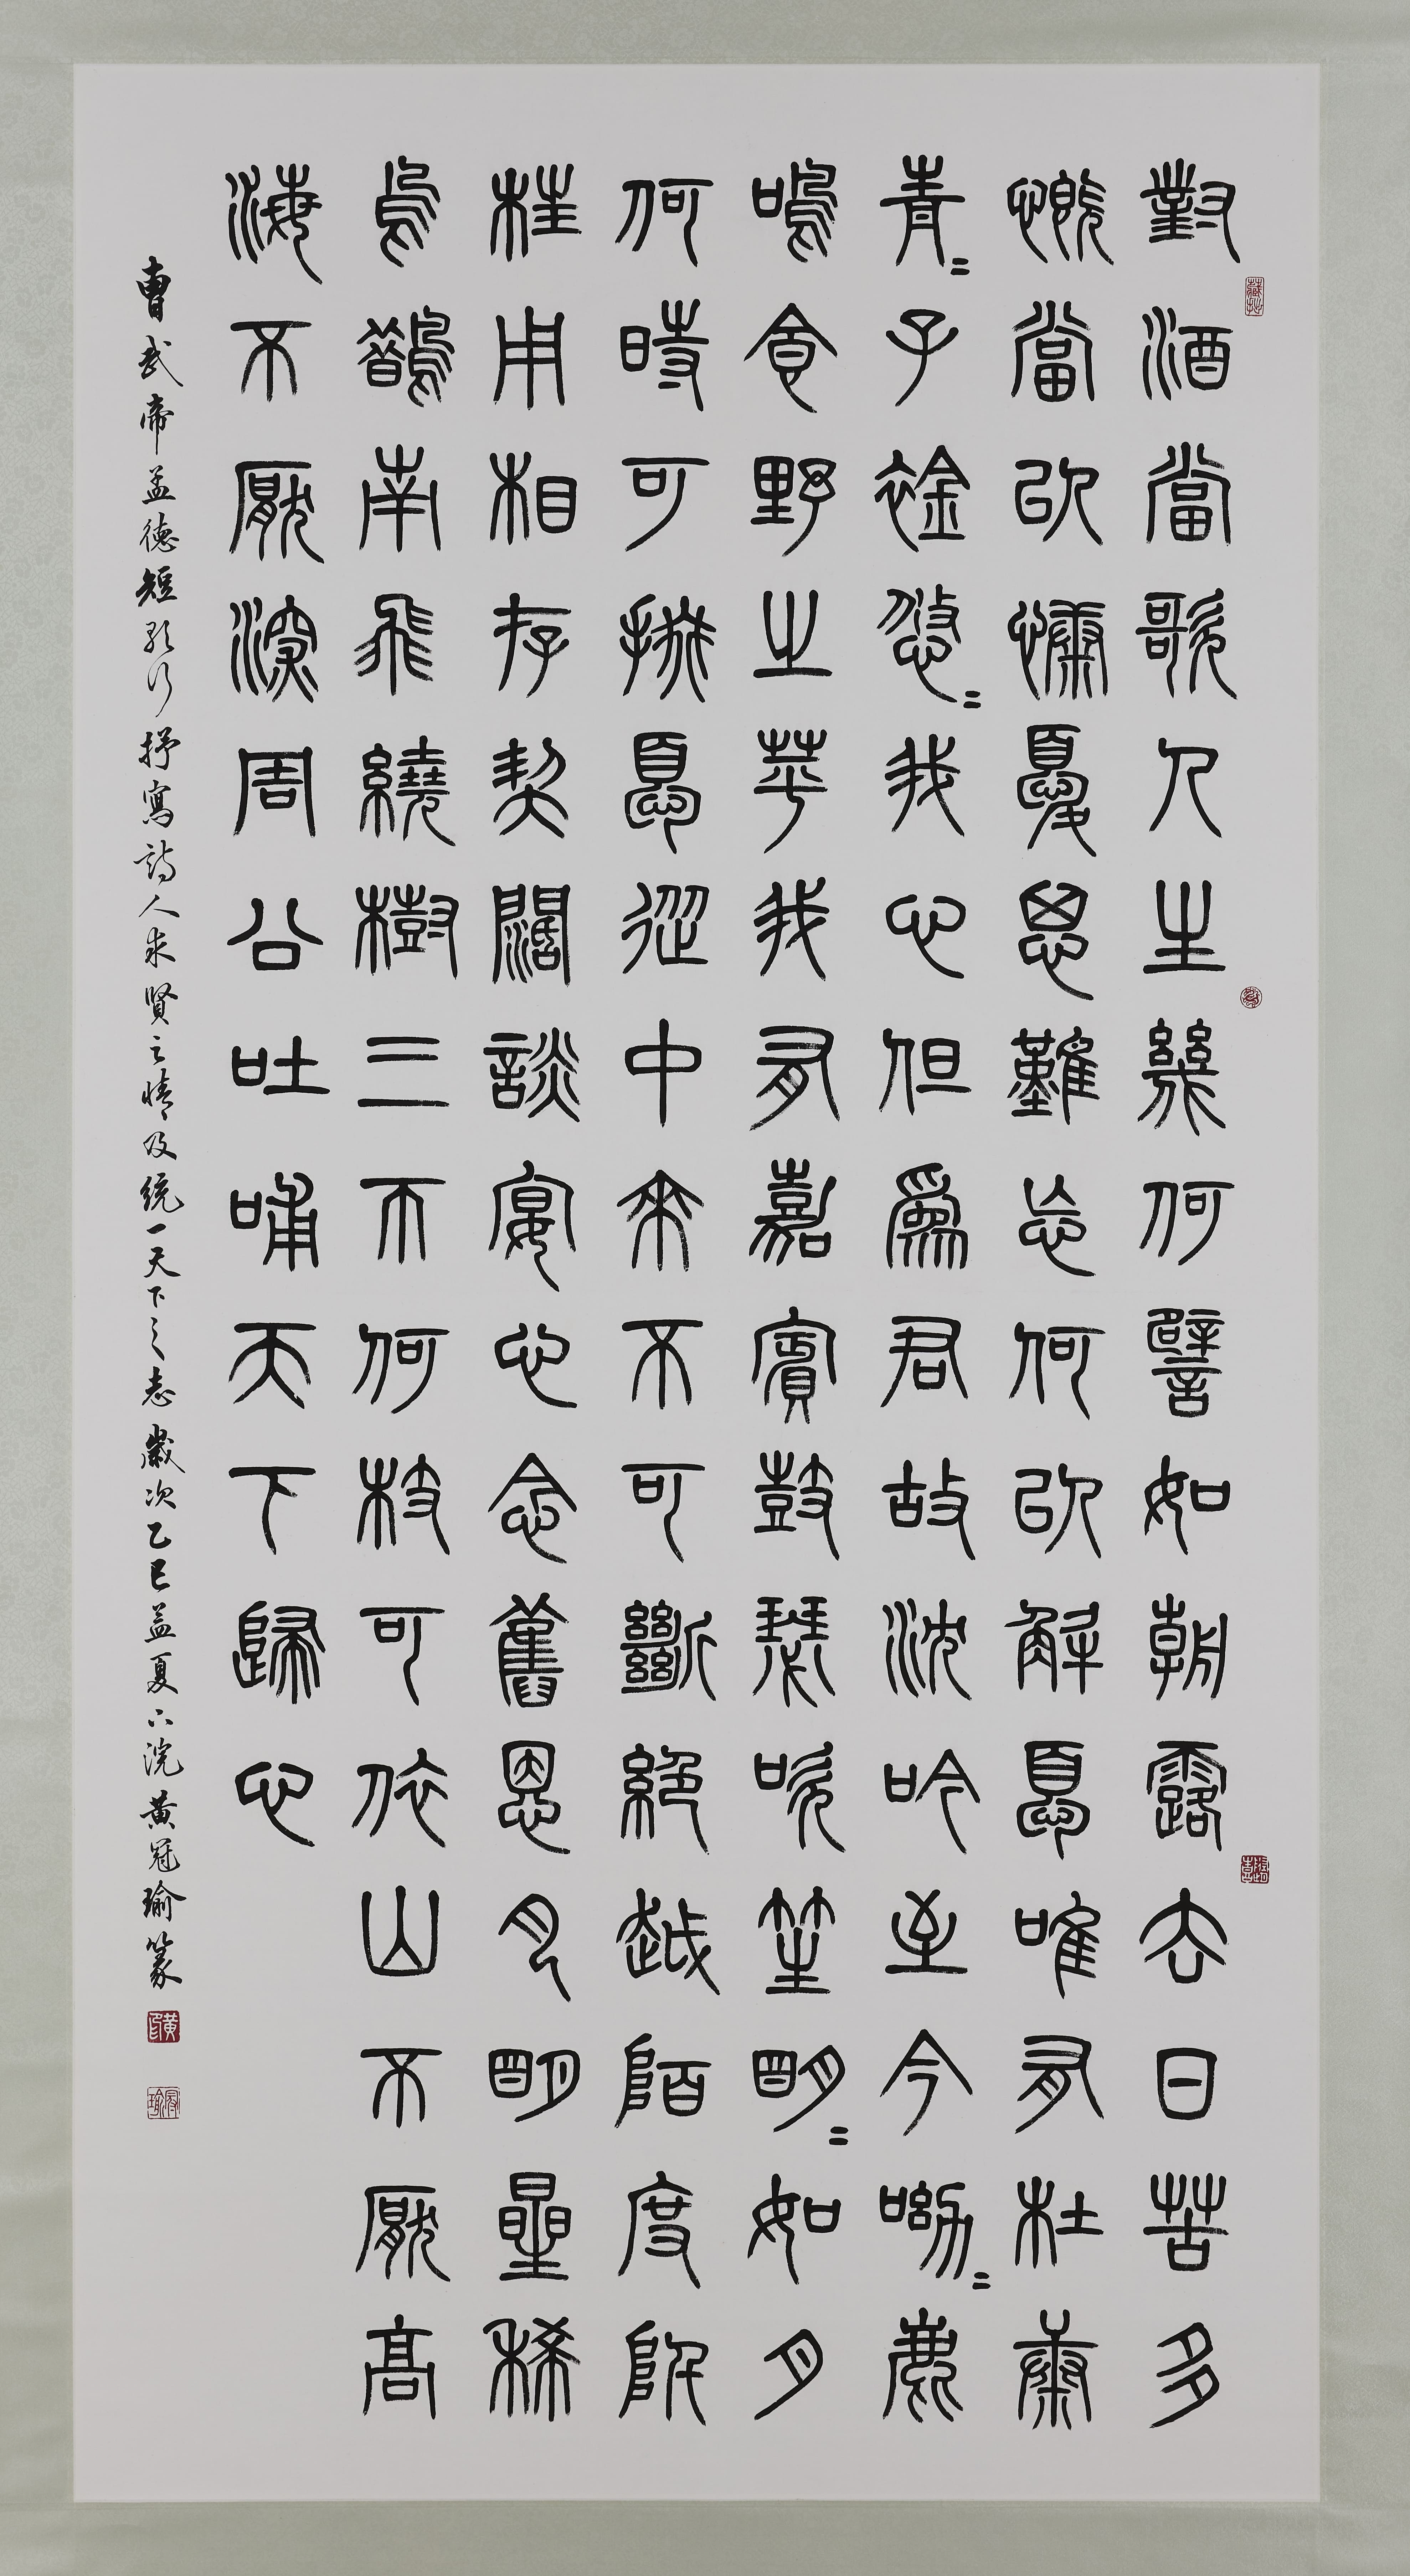 對酒當歌人生幾何譬如朝露去日苦多
慨當以慷憂思難忘何以解憂唯有杜康
青=子衿悠=我心但爲君故沈吟至今呦=鹿
鳴食野之苹我有嘉賓鼓瑟吹笙明=如月
何時可掇憂從中來不可斷絕越陌度阡
枉用相存契闊談宴心念舊恩月明星稀
烏鵲南飛繞樹三帀何枝可依山不厭高
海不厭深周公吐哺天下歸心
曹武帝孟德短歌行抒寫詩人求賢之情及統一天下之志歲次乙巳孟夏六浣黃冠瑜篆
黃印
冠瑜